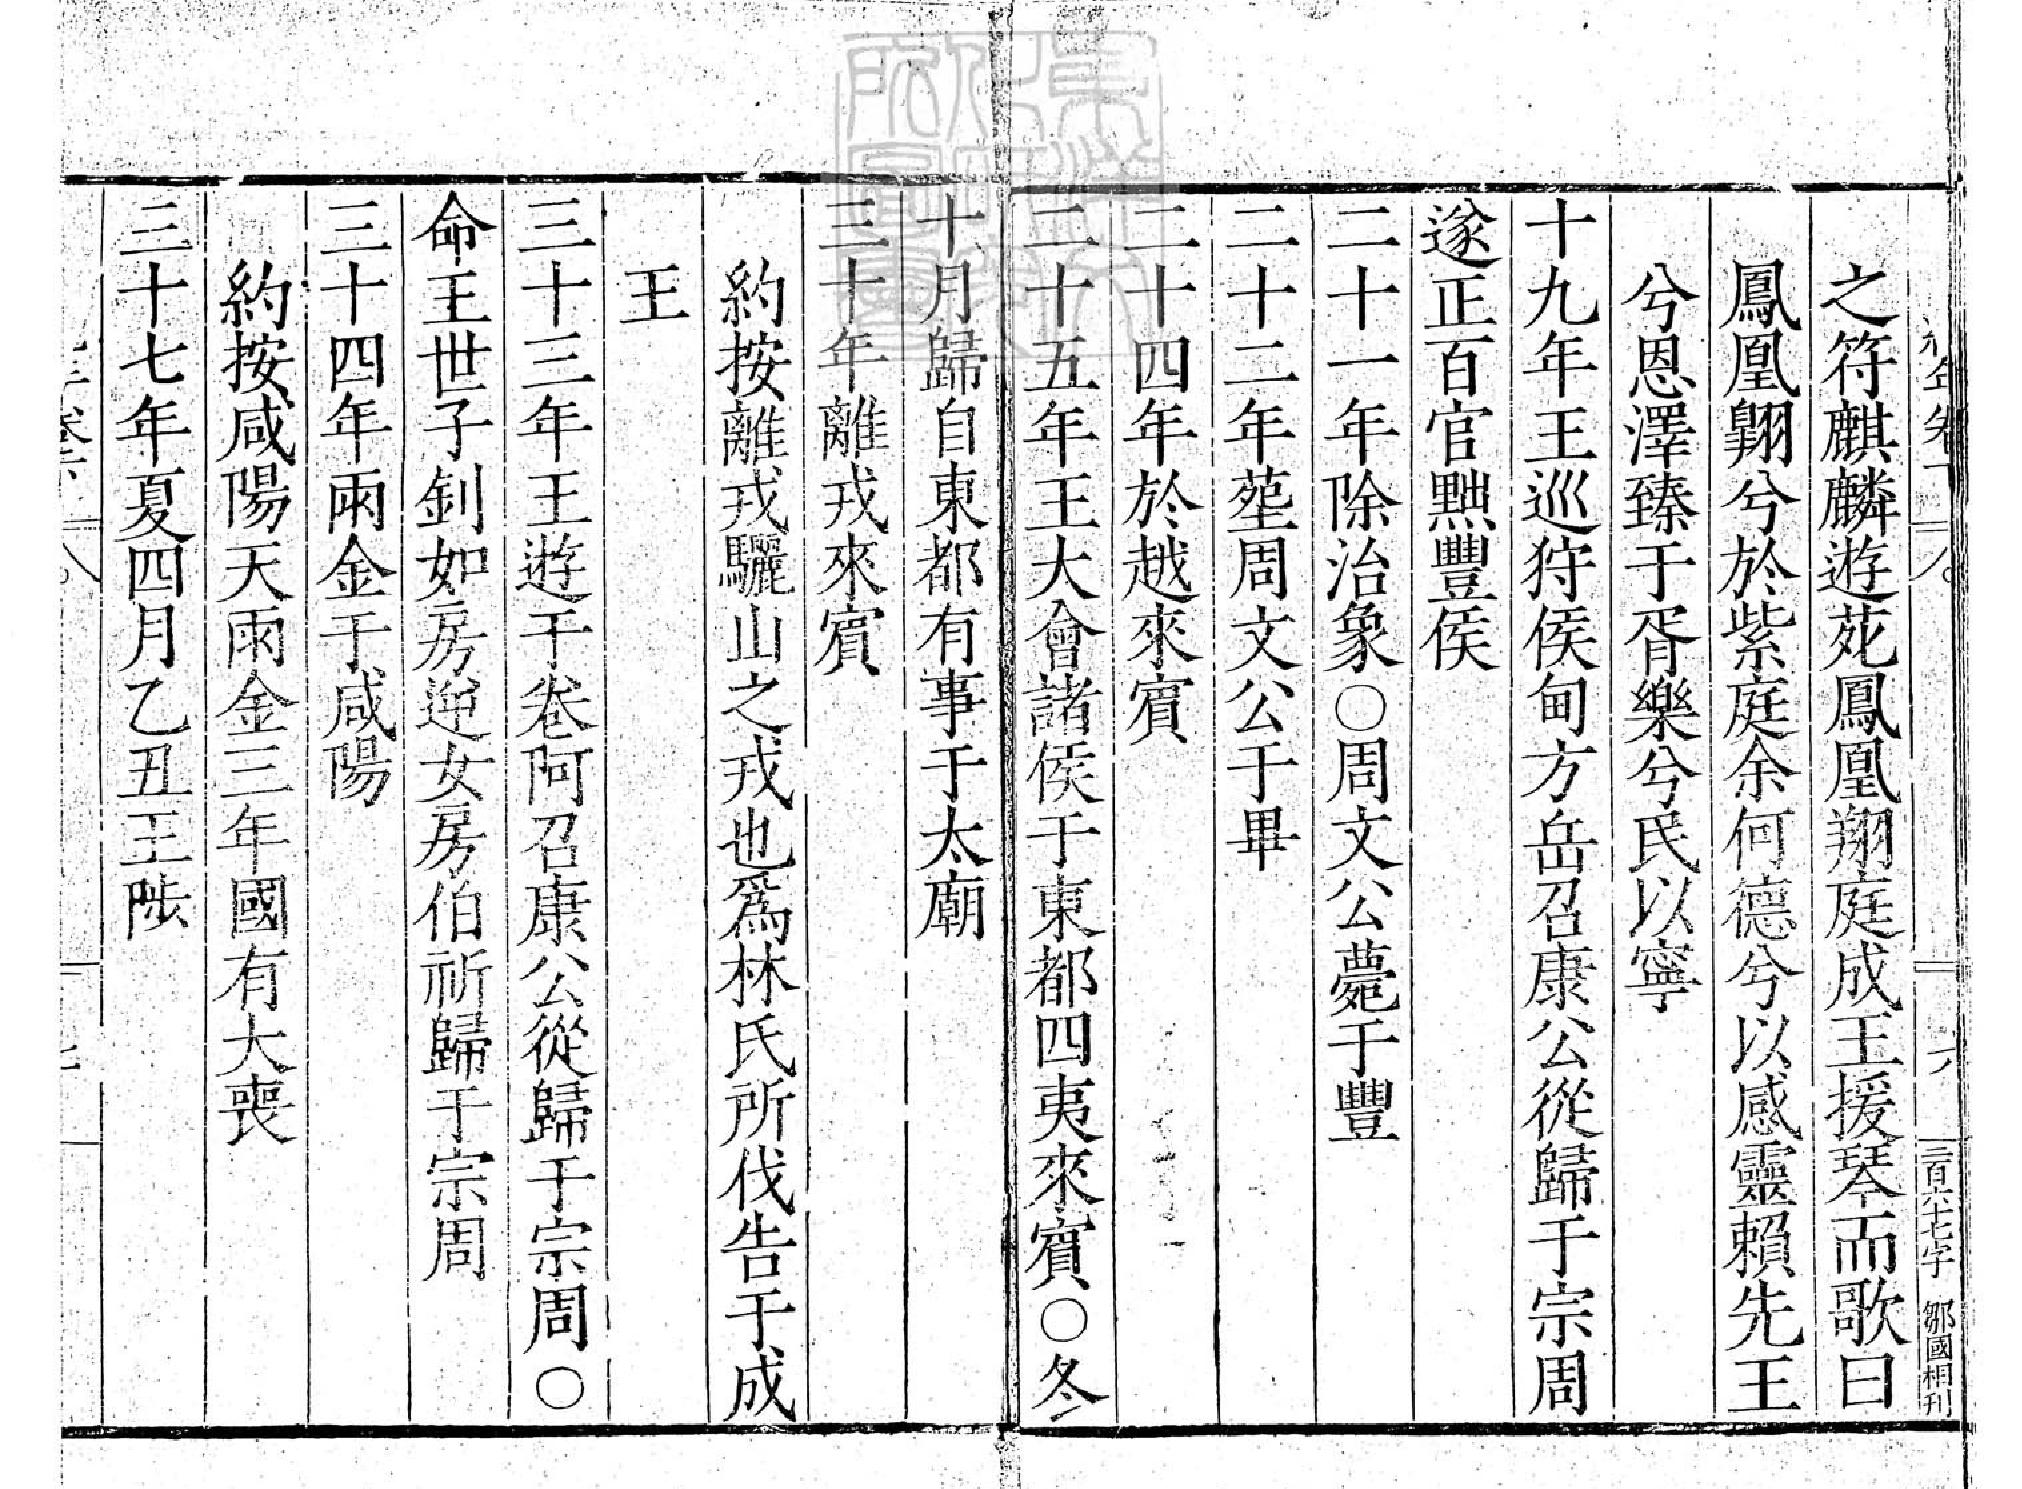 三百六十七字 鄒國相刊
之符麒麟遊苑鳳凰翔庭成王援琴而歌曰
鳳凰翺兮於紫庭余何德兮以感靈賴先王
兮恩澤臻于胥樂兮民以寧
十九年王巡狩侯甸方岳召康公從歸于宗周
遂正百官黜豐侯
二十一年除治象○周文公薨于豐
二十二年塟周文公于畢
二十四年於越來賓
二十五年王大會諸侯于東都四夷來賓○冬
十月歸自東都有事于太廟
三十年離戎來賓
約按離戎驪山之戎也爲林氏所伐告于成
王
三十三年王遊于卷阿召康公從歸于宗周○
命王世子釗如房逆女房伯祈歸于宗周
三十四年雨金于咸陽
約按咸陽天雨金三年國有大喪
三十七年夏四月乙丑王陟